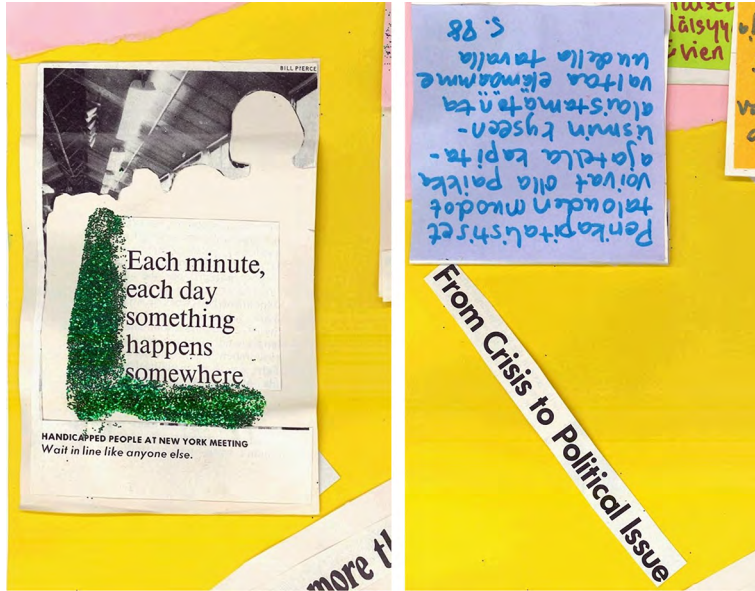 BILL PIERCE
Each minute,
each day
something
happens
somewhere
HANDICAPPED PEOPLE AT NEW YORK MEETING
Wait in line like anyone else.
more th
Perikapitalistiset
talouden muodot
voivat olla paikka
ajatella kapita-
lismin kyseen-
alaistamatonta
valtaa elämäämme
uudella tavalla
s. 88
From Crisis to Political Issue